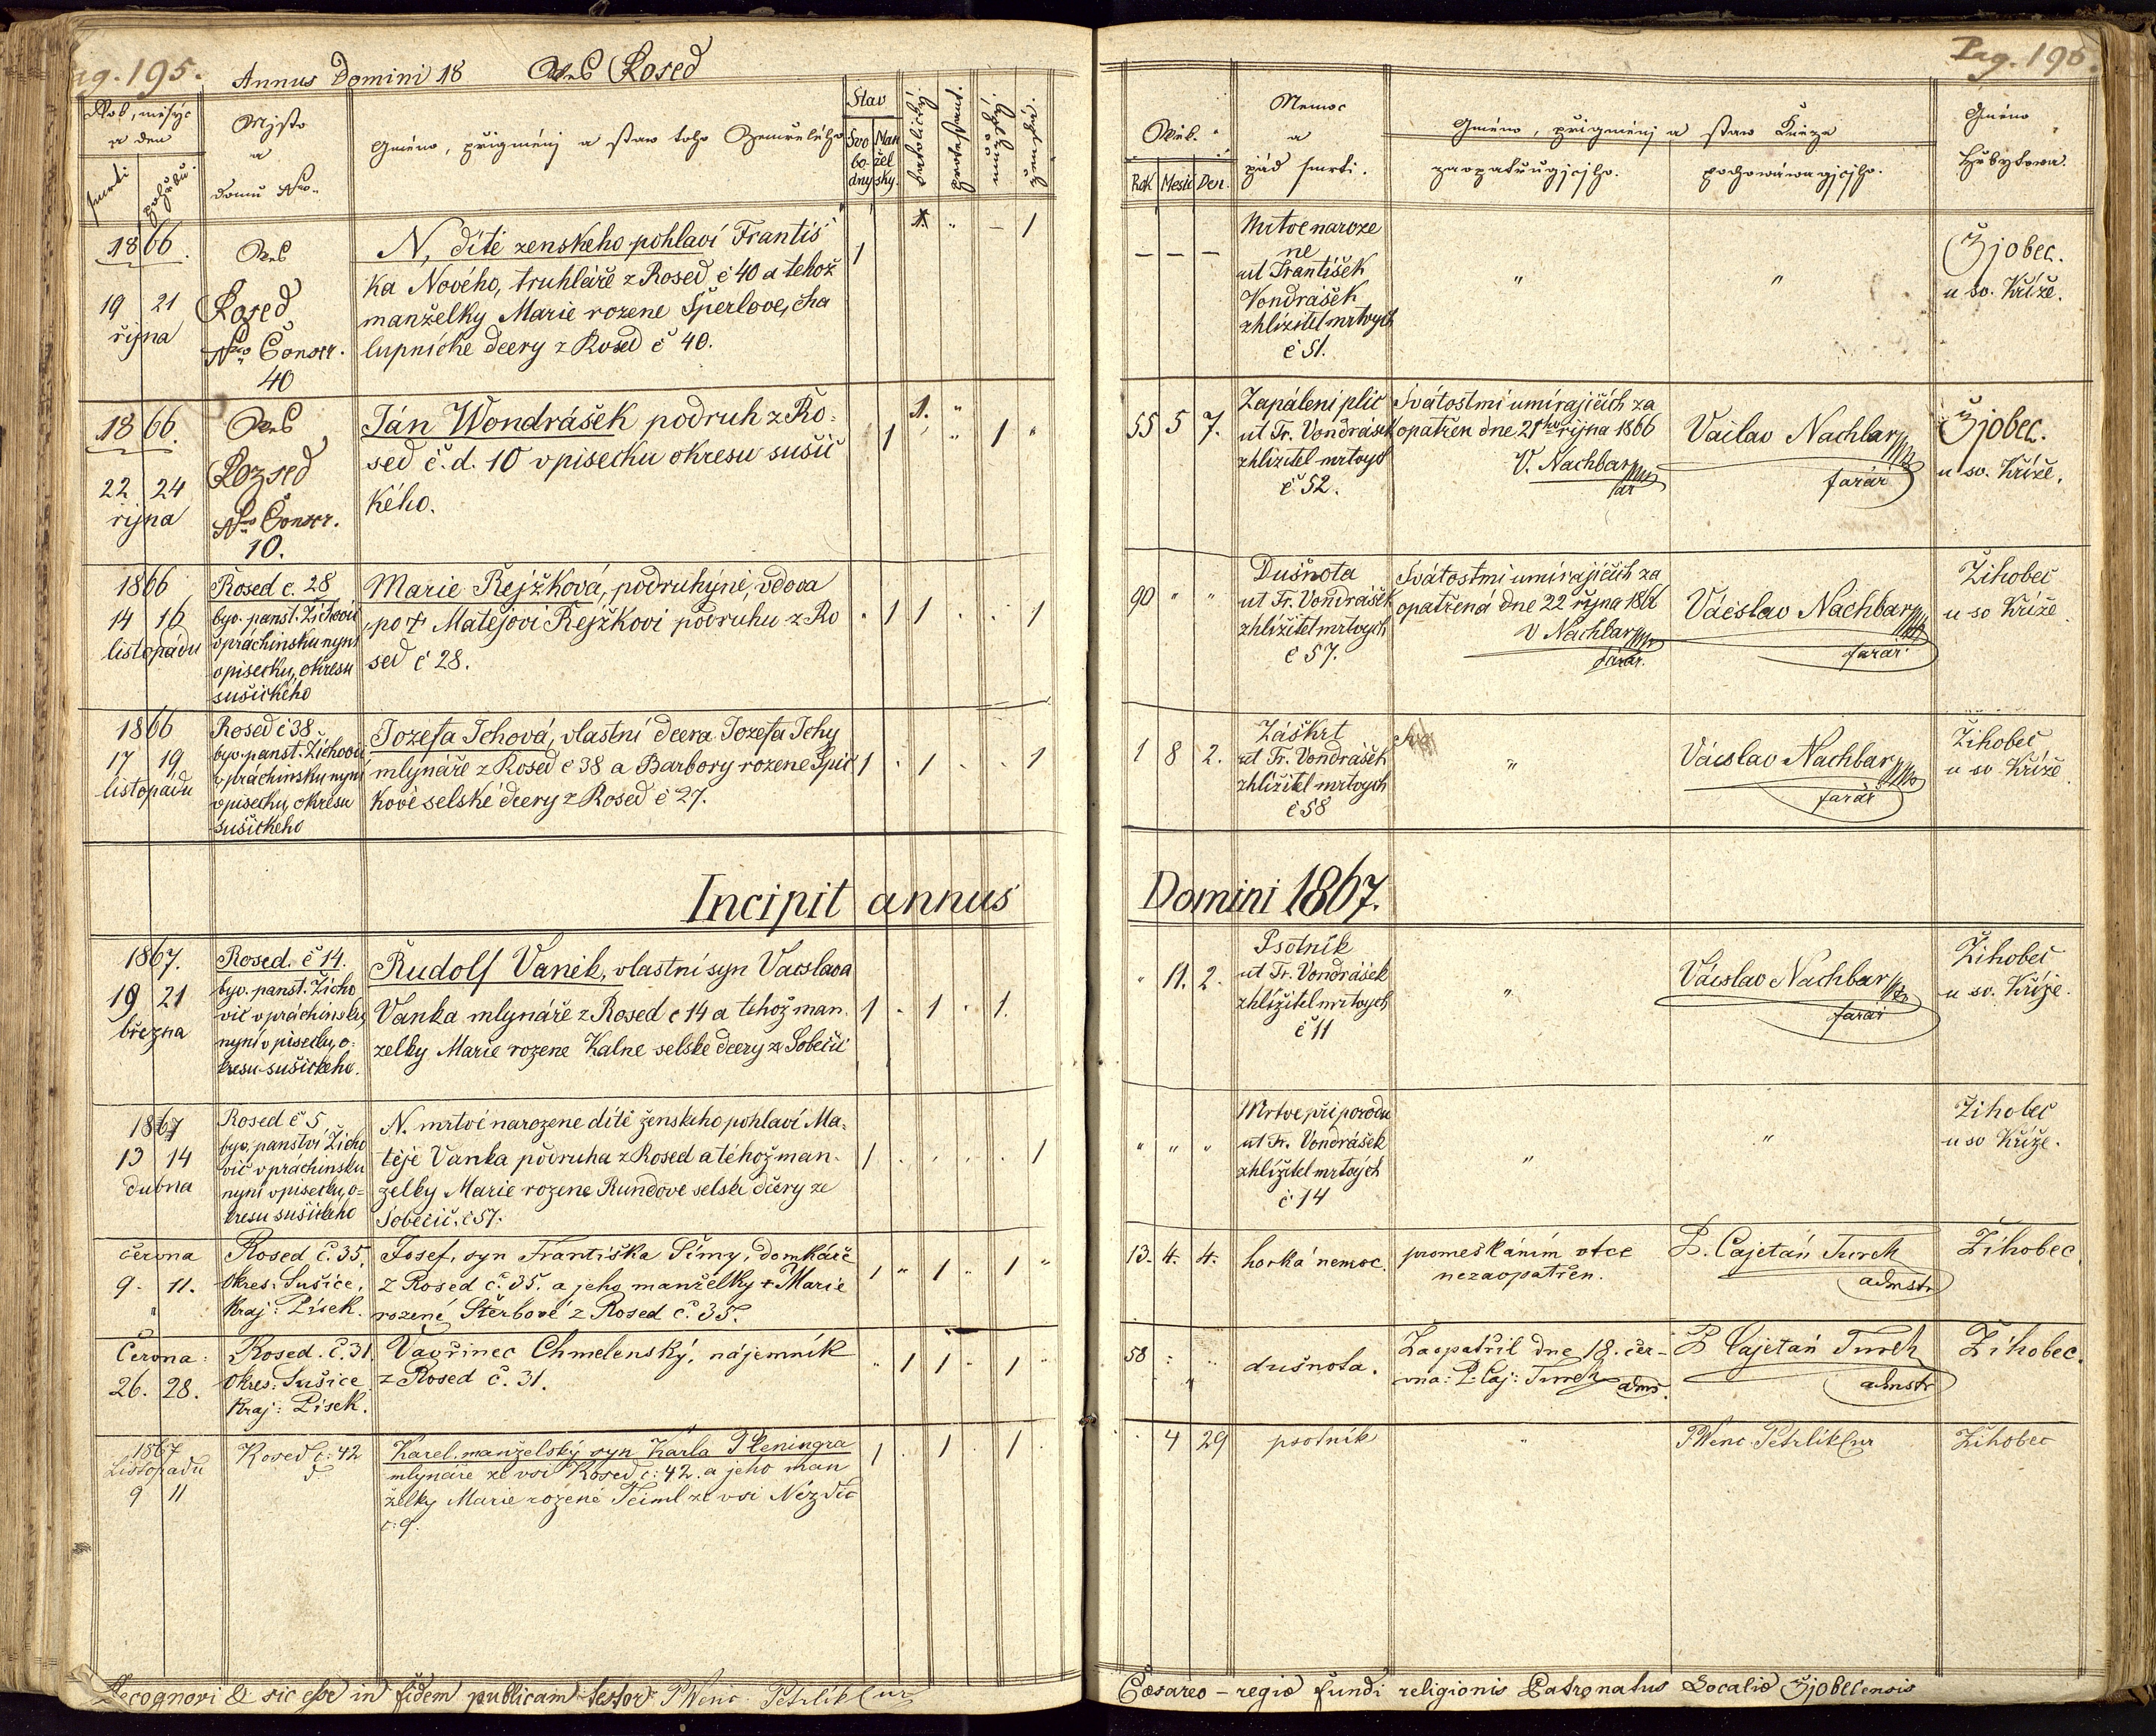 ag. 195.
Annus Domini 18 Ves Rosed
Rok, měsýc
a den
smrti
pohřbu.
Mjsto
a
domu Nro.
Gméno, přigménj a staw toho Zemřelého
Stav
Svo
bo-
dný
Man
žel
ský.
katolický.
protestant.
mužský.
ženské.
1866.
19 21
října
Ves
Rosed
Nro Conscr.
40
N, dítě ženskeho pohlaví Frantiś
ka Nového, truhláře z Rosed č 40 a tehož
manželky Marie rozene Šperlove, cha
lupnické dcery z Rosed č 40.
1 1. „ – 1
1866.
22 24
října
Ves
Rozsed
Nro Conscr.
10.
Ján Wondrášek podruh z Ro-
sed č. d. 10 v pisecku okresu sušič
kého.
1 1. „ 1 „
1866
14 16
listopadu
Rosed č. 28
byv. panst. Žichovic
v prachinsku nyní
v pisecku, okresu
sušického
Marie Řejžková, podruhyně, vdova
po † Matějovi Řejžkovi podruhu z Ro
sed č 28.
. 1 1 . . 1
1866
17 19
listopadu
Rosed č 38
byv. panst. Žichovic
v prachinsku nyní
v pisecku, okresu
sušickeho
Jozefa Ichová, vlastní dcera Jozefa Ichy
mlynáře z Rosed č 38 a Barbory rozene Špič
kové selské dcery z Rosed č 27.
1 . 1 . . 1
Incipit annus
1867.
19 21
března
Rosed. č 14.
byv. panst. Žicho
vic v práchinsku,
nyní v pisecku, o-
kresu sušickeho.
Rudolf Vaněk, vlastní syn Vacslava
Vaňka mlynáře z Rosed č 14 a tehož man.
želky Marie rozene Kalne selske dcery ze Soběčič
1 . 1 . 1.
1867
13 14
dubna
Rosed č 5
byv. panství Žicho
vic v prachinsku
nyní v pisecku, o=
kresu sušickeho
N. mrtvé narozene dítě ženskeho pohlaví Ma-
těje Vaňka podruha z Rosed a téhož man-
želky Marie rozene Rundove selske dcery ze
Soběčič. č 57.
1 . . . . 1
června
9. 11.
Rosed č. 35,
okres: Sušice,
Kraj: Písek.
Josef, syn Františka Šímy, domkáře
z Rosed č. 35. a jeho manželky † Marie
rozené Štěrbové z Rosed č. 35.
1 „ 1 „ 1 „
Června:
26. 28.
Rosed. č. 31.
okres: Sušice
Kraj: Písek.
Vavřinec Chmelenský, nájemník
z Rosed č. 31.
„ 1 1 . 1 „
1867
Listopadu
9 11
Rosed č: 42
Karel. manželský syn Karla Pfeningra
mlynáře ze vsi Rosed č: 42. a jeho man
želky Marie rozené Teiml ze vsi Nezdic
č: 9.
1 . 1 . 1
Recognovi & sic esse in fidem publicam testor P Wenc. Petrlík Cur
Pag. 196.
Věk.
Rok Mesic Den.
Nemoc
a
pád smrti.
Gméno, přigménj a staw Kněze
zaopatřugjcjho.
pochowáwagjcjho.
Gméno
Hřbytowa.
– – –
Mrtvě naroze
ne
ut František
Vondrášek
zhlížitel mrtvych
č 51.
„ „
Žjobec.
u sv. Kříže.
55 5 7.
Zapáleni plic
ut Fr. Vondrášek
zhlížitel mrtvych
č 52.
Svátostmi umírajicich za
opatřen dne 21ho rijna 1866
V. Nachbar
far
Václav Nachbar
farář
Žjobec.
u sv. Kříže.
90 „ „
Dušnota
ut Fr. Vondrášek
zhlížitel mrtvych
č 57.
Svátostmi umírajicich za
opatřená dne 22 října 1866
V Nachbar
farar.
Václav Nachbar
farar.
Žihobec
u sv Kříže
1 8 2.
Záškrt
ut Fr. Vondrášek
zhlížitel mrtvych
č 58
„
Václav Nachbar
farář
Žihobec
u sv Kříže
Domini 1867.
„ 11. 2.
Psotník
ut Fr. Vondrášek
zhlížitel mrtvych
č 11
„
Václav Nachbar
farář
Žihobec
u sv. Kříže.
„ „ „
Mrtve při porodu
ut Fr. Vondrášek
zhlížitel mrtvých
č 14
„ „
Žihobec
u sv Kříže.
13. 4. 4.
horká nemoc.
promeškáním otce
nezaopatřen.
P. Cajetán Turek
admstr
Žihobec
58 „ „
dušnota.
Zaopatřil dne 18. čer-
vna: P. Caj: Turek adms.
P Cajetán Turek
admstr
Žihobec.
. 4 29
psotník
„
P Wenc. Petrlík Cur
Žihobec
Cæsareo – regiæ fundi religionis Patronatus Localiæ Žjobecensis